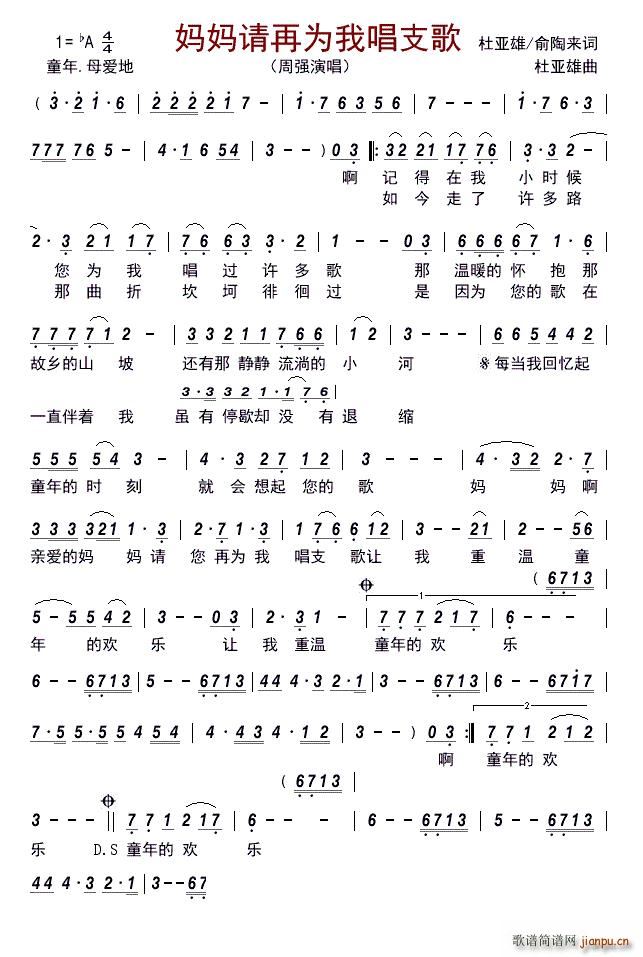 1= ♭A 4/4 妈妈请再为我唱支歌 杜亚雄/俞陶来词
童年.母爱地 （周强演唱） 杜亚雄曲
( 3·2 1·6 | 2 2 2 2 1 7 - | 1·7 6 3 5 6 | 7 - - - | 1·7 6·3 |
7 7 7 7 6 5 - | 4·1 6 5 4 | 3 - - ) 0 3 |: 3 2 2 1 1 7 7 6 | 3·3 2 - |
啊 记 得 在 我 小 时 候
如 今 走 了 许 多 路
2·3 2 1 1 7 | 7 6 6 3 3·2 | 1 - 0 3 | 6 6 6 6 7 1·6 |
您 为 我 唱 过 许 多 歌 那 温暖的 怀 抱 那
那 曲 折 坎 坷 徘 徊 过 是 因为 您的 歌 在
7 7 7 7 1 2 - | 3 3 2 1 1 7 6 6 | 1 2 - | 6 6 5 4 4 2 |
故乡的 山 坡 还有那 静静 流淌的 小 河 𝄋 每当我回忆起
3·3 3 3 2 1·1 7 6 |
一直伴着 我 虽 有 停歇却 没 有 退 缩
5 5 5 5 4 3 - | 4·3 2 7 1 2 | 3 - - - | 4·3 2 2·7 |
童年的 时 刻 就 会 想起 您的 歌 妈 妈 啊
3 3 3 3 2 1 1·3 | 2·2 1 7 6 | 1 7 6 6 1 2 | 3 - - 2 1 | 2 - - 5 6 |
亲爱的妈 妈 请 您 再为 我 唱支 歌让 我 重 温 童
( 6 7 1 3
5 - 5 5 4 2 | 3 - - 0 3 | 2·3 1 | 7 7 7 2 1 7 | 6 - - - |
1
年 的 欢 乐 让 我 重温 童年的 欢 乐
6 - - 6 7 1 3 | 5 - - 6 7 1 3 | 4 4 4·3 2·1 | 3 - - 6 7 1 3 | 6 - - 6 7 1 7 |
7·5 5·5 5 4 5 4 | 4·3 4 3 4·1 2 | 3 - - ) 0 3 :| 7 7 1 2 1 2 |
2
啊 童年的 欢
( 6 7 1 3
3 - - - || 7 7 1 2 1 7 | 6 - - - | 6 - - 6 7 1 3 | 5 - - 6 7 1 3 |
乐 D.S 童年的 欢 乐
4 4 4·3 2·1 | 3 - - 6 7 |
歌谱简谱网 jianpu.cn